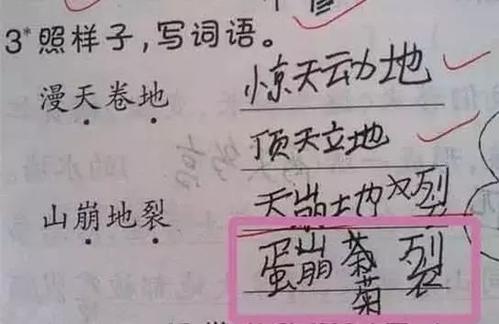 3*照样子，写词语。
漫天卷地 惊天动地
顶天立地
山崩地裂 天崩地裂
蛋崩菊裂